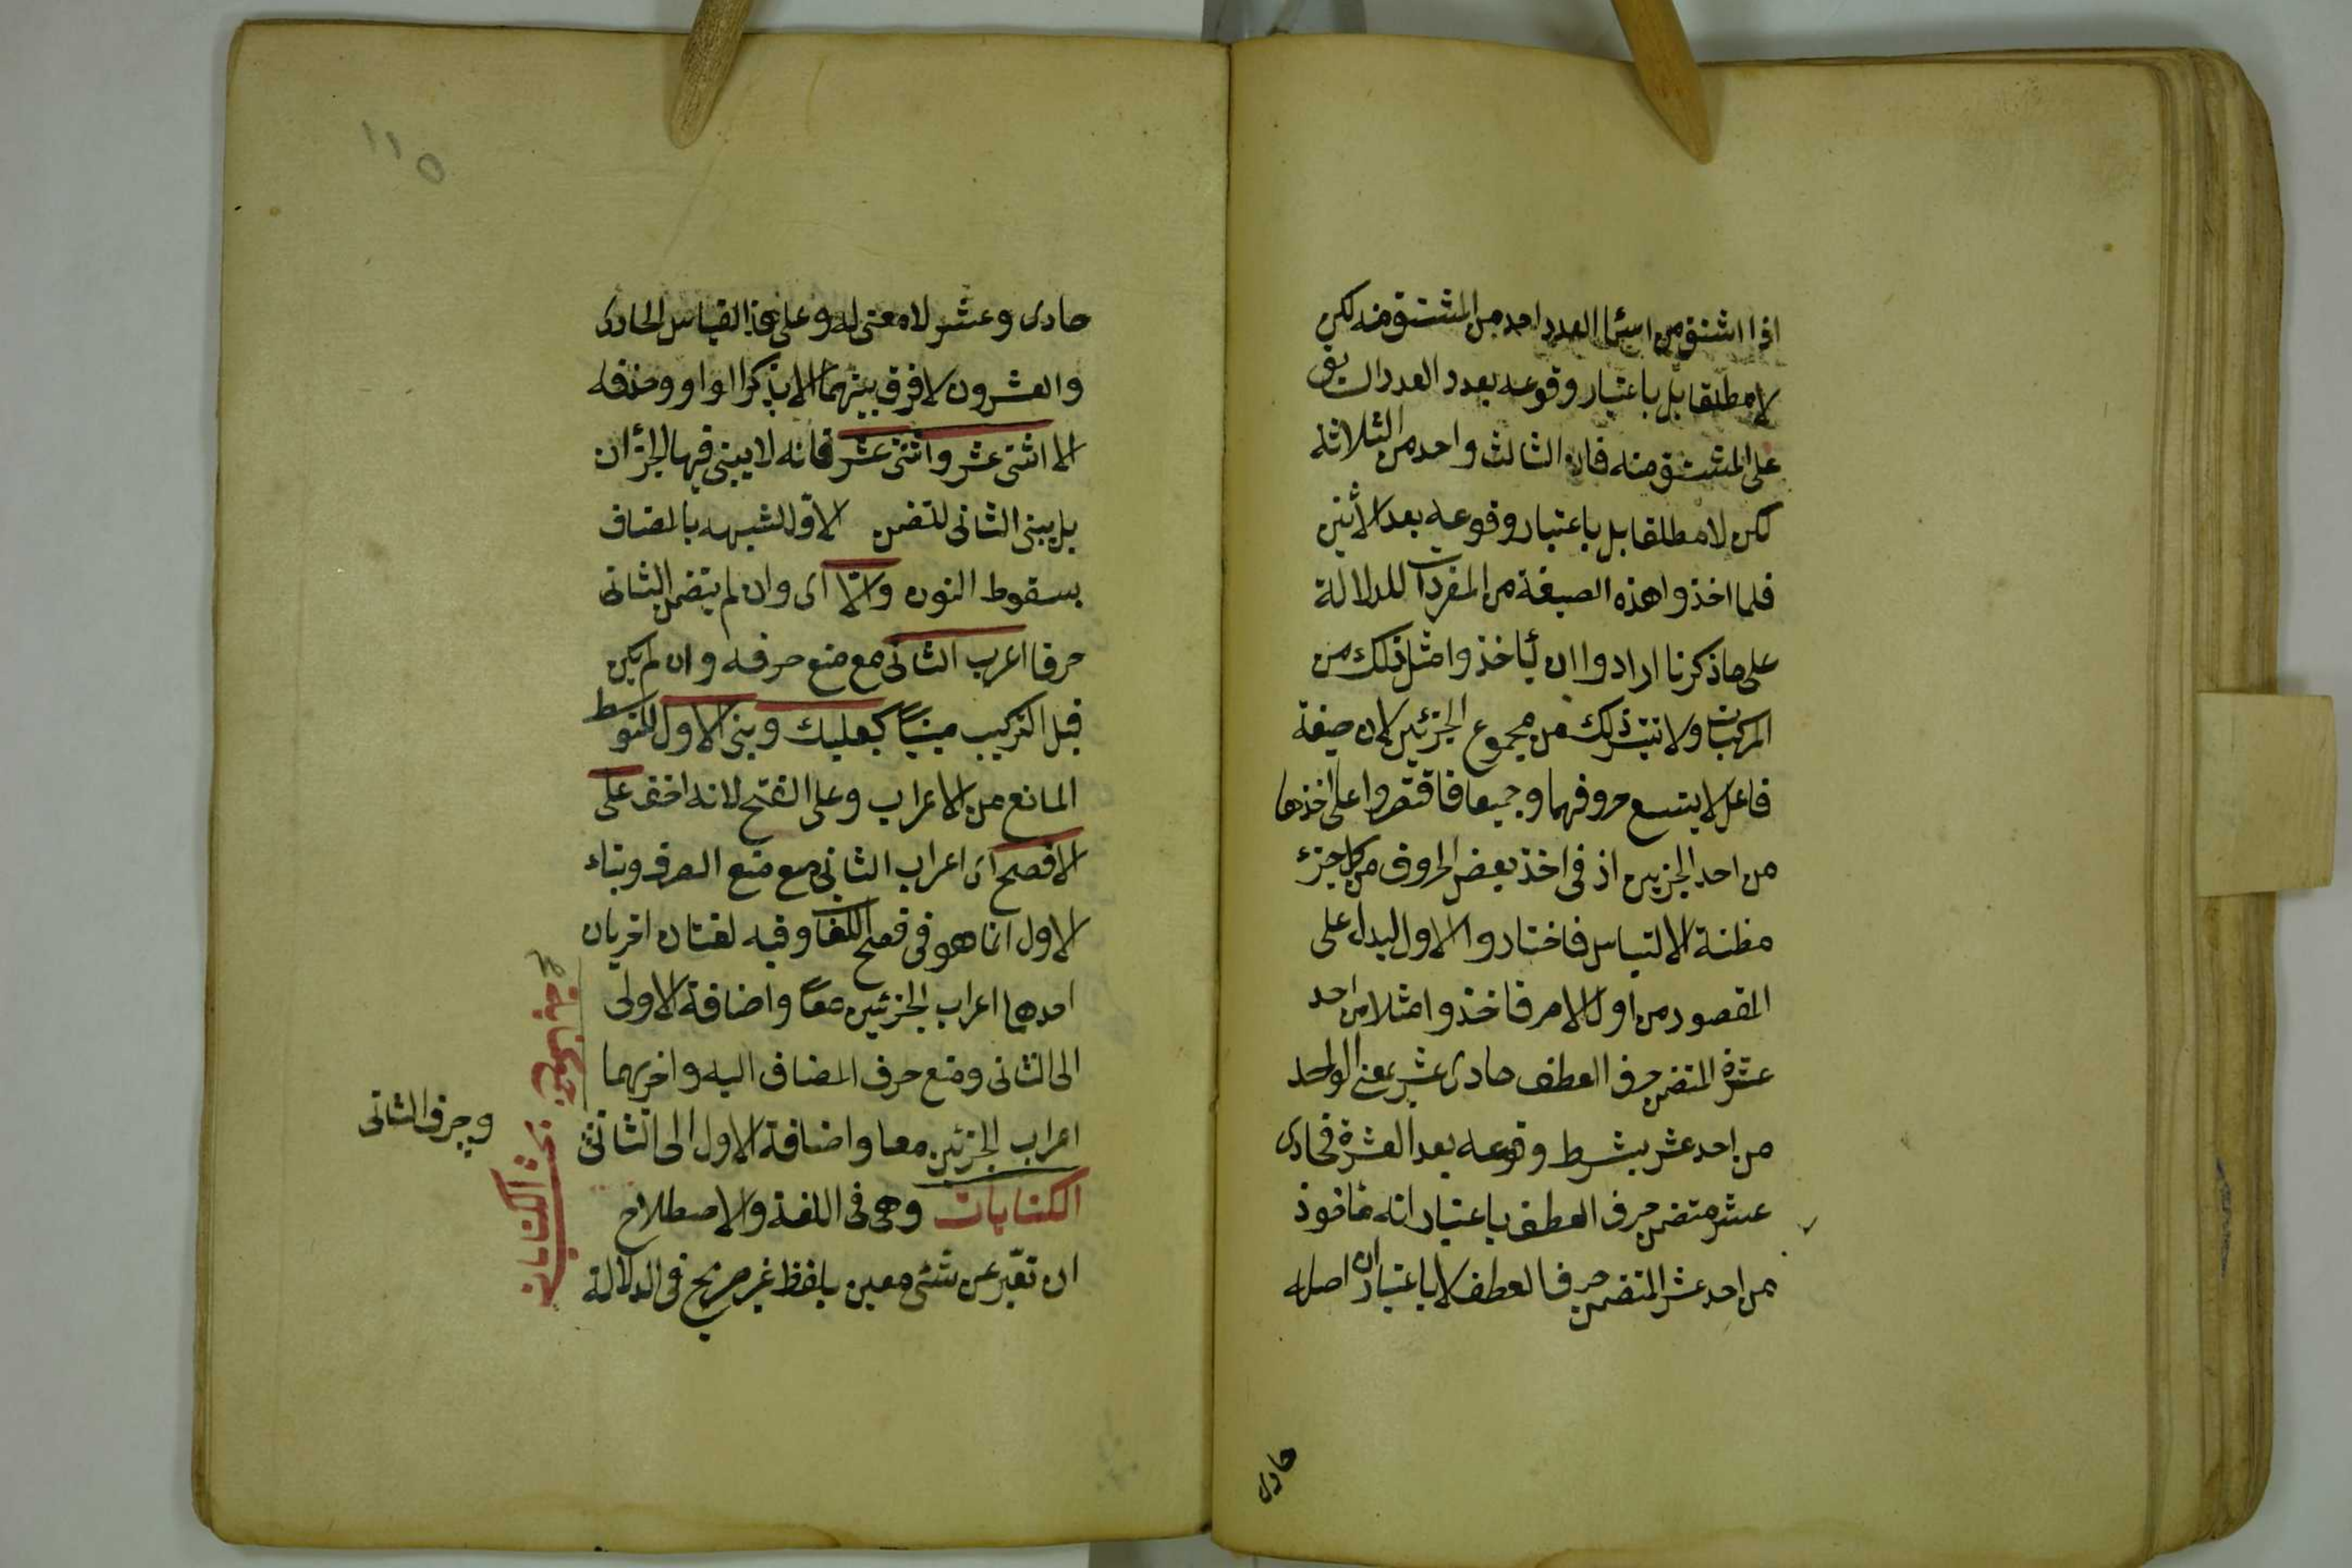 اذا اشتق من اسماء العدد احد من المشتق منه لكن
لا مطلقا بل باعتبار وقوعه بعدد العدد السابق
على المشتق منه فان الثالث واحد من الثلاثة
لكن لا مطلقا بل باعتبار وقوعه بعد الاثنين
فلما اخذوا هذه الصيغة من المفردات للدلالة
على ما ذكرنا ارادوا ان يأخذوا مثل ذلك من
المركبات ولا تتيسر ذلك من مجموع الجزئين لان صيغة
فاعل لا يتسع حروفهما وجميعا فاقتصروا على اخذها
من احد الجزيين اذ فى اخذ بعض الحروف من كل جزء
مظنة الالتباس فاختاروا الاول ليدل على
المقصود من اول الامر فاخذوا مثلا من احد
عشرة المتضمن حرف العطف حادى عشر بمعنى الواحد
من احد عشر بشرط وقوعه بعد العشرة فحادى
عشر متضمن حرف العطف باعتبار انه مأخوذ
من احد عشر المتضمن حرف العطف لا باعتبار ان اصله
حادى
١١٥
حادى وعشر لا معنى له وعلى هذا القياس الحادى
والعشرون لا فرق بينهما الا بذكر الواو وحذفه
الا اثنى عشر واثنتى عشر فانه لا يبنى فيها الجزأن
بل يبنى الثانى للتضمن الاول لشبهه بالمضاف
بسقوط النون والّا اى وان لم يتضمن الثانى
حرفا اعرب الثانى مع منع صرفه وان لم يكن
قبل التركيب مبنيًّا كبعلبك وبنى الاول للتوسط
المانع من الاعراب وعلى الفتح لانه اخف على
الافصح اى اعراب الثانى مع منع الصرف وبناء
الاول انما هو فى فصح اللغات وفيه لغتان اخريان
احدهما اعراب الجزئين معًا واضافة الاولى
الى الثانى ومنع صرف المضاف اليه واخريهما
اعراب الجزئين معا واضافة الاول الى الثانى
وصرف الثانى
الكنايات وهى فى اللغة والاصطلاح
ان تعبّر عن شئ معين بلفظ غير صريح فى الدلالة
بحث الكنايات